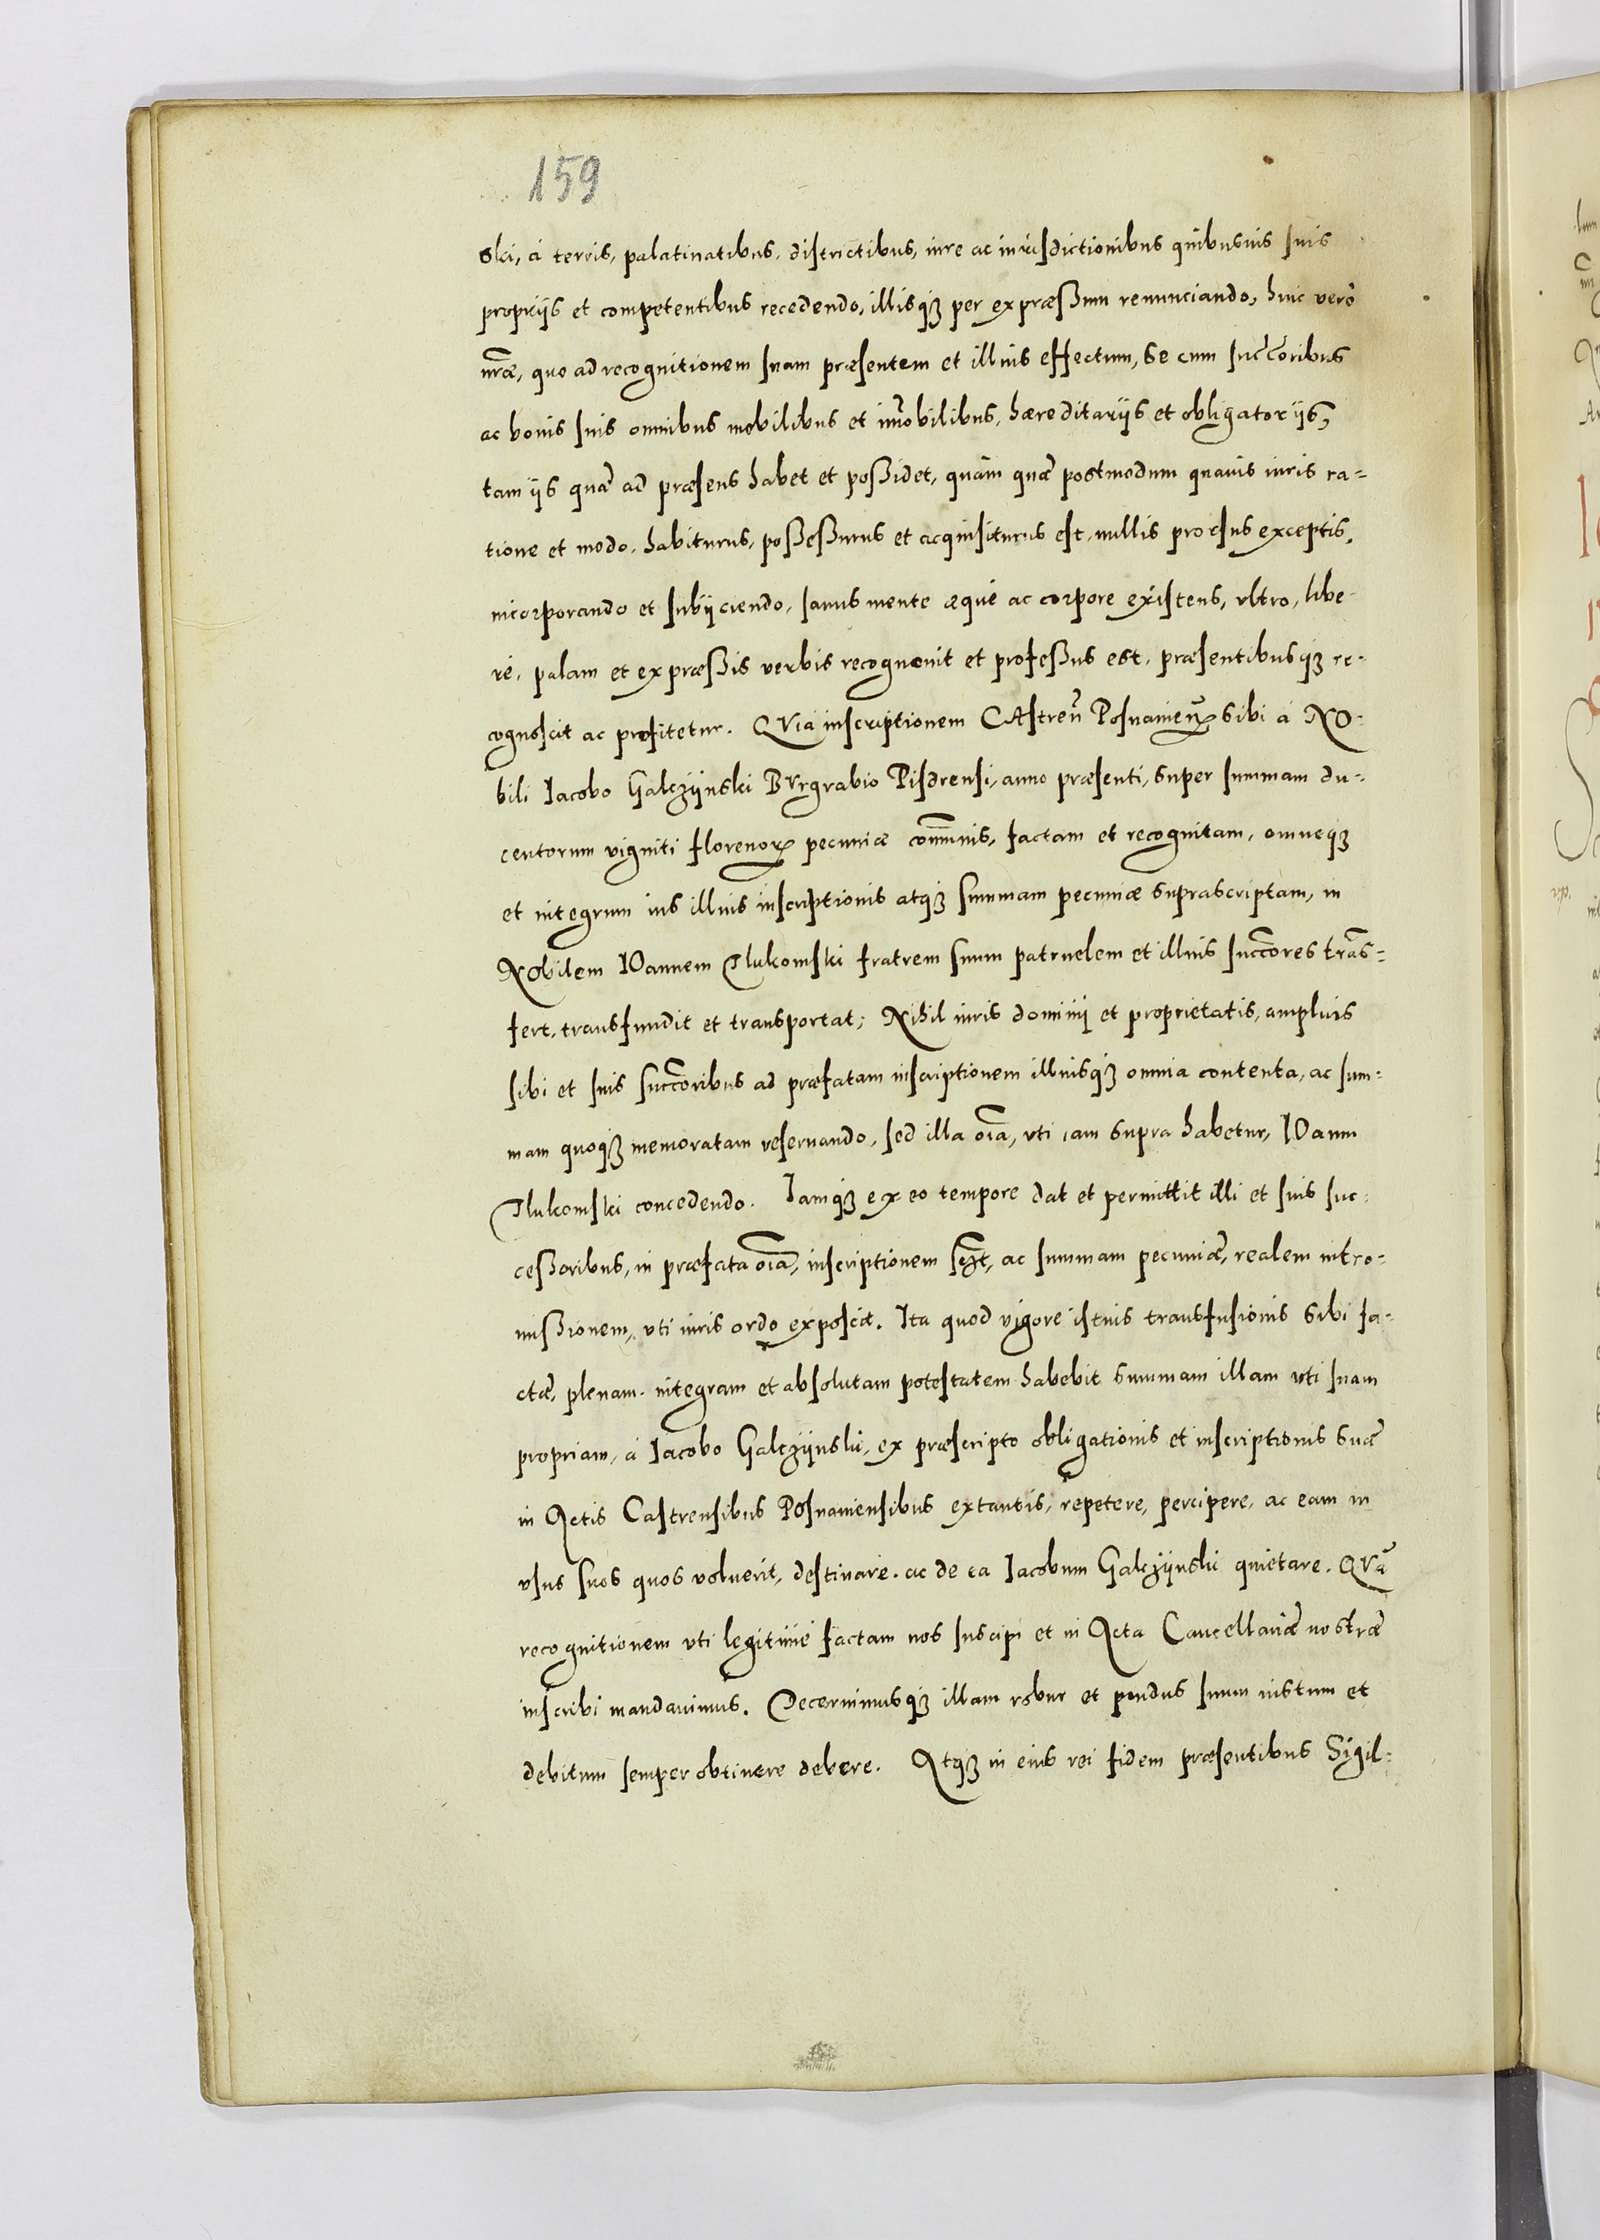 159
ski, à terris, palatinatibus, districtibus, iure ac iurisdictionibus quibusuis suis
proprijs et competentibus recedendo, illisq3 per expræssum renunciando, huic verò
nr̃æ, quo ad recognitionem suam præsentem et illius effectum, se cum succ̃oribus
ac bonis suis omnibus mobilibus et im̃obilibus, hæreditarijs et obligatorijs,
tam ijs quæ ad præsens habet et possidet, quàm quæ postmodum quauis iuris ra-
tione et modo, habiturus, possessurus et acquisiturus est, nullis prorsus exceptis,
incorporando et subijciendo, sanus mente æquè ac corpore existens, vltro, libe-
rè, palam et expræssis verbis recognouit et professus est, præsentibusq3 re-
cognoscit ac profitetur. QVia inscriptionem CAstreñ Posnanieñ sibi à NO-
bili Iacobo Galczijnski BVrgrabio Pisdrensi, anno præsenti, super summam du-
centorum viginti florenoꝝ pecuniæ com̃unis, factam et recognitam, omneq3
et integrum ius illius inscriptionis atq3 summam pecuniæ suprascriptam, in
NObilem IOannem Tlukomski fratrem suum patruelem et illius succ̃ores trãs-
fert, transfundit et transportat; Nihil iuris dominij et proprietatis, amplius
sibi et suis succ̃oribus ad præfatam inscriptionem illiusq3 omnia contenta, ac sum-
mam quoq3 memoratam reseruando, sed illa oĩa, vti iam supra habetur, IOanni
Tlukomski concedendo. Iamq3 ex eo tempore dat et permittit illi et suis suc-
cessoribus, in præfata oĩa, inscriptionem ac summam pecuniæ, realem intro-
missionem, vti iuris ordo exposcit. Ita quod vigore istius transfusionis sibi fa-
ctæ, plenam, integram et absolutam potestatem habebit summam illam vti suam
propriam, à Iacobo Galczijnski, ex præscripto obligationis et inscriptionis suæ
in Actis Castrensibus POsnaniensibus extantis, repetere, percipere, ac eam in
vsus suos quos voluerit, destinare, ac de ea Iacobum Galczijnski quietare. QVã
recognitionem vti legitimè factam nos suscipi et in Acta Cancellariæ nostræ
inscribi mandauimus. Decernimusq3 illam robur et pondus suum iustum et
debitum semper obtinere debere. Atq3 in eius rei fidem præsentibus Sigil-